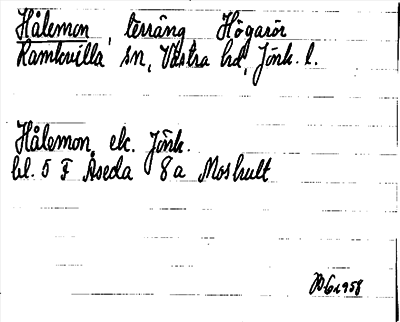 Hålemon, terräng Högarör
Ramkvilla sn, Västra hd, Jönk. l.
Hålemon, ek. Jönk.
bl. 5 F Åseda 8a Moshult
1958